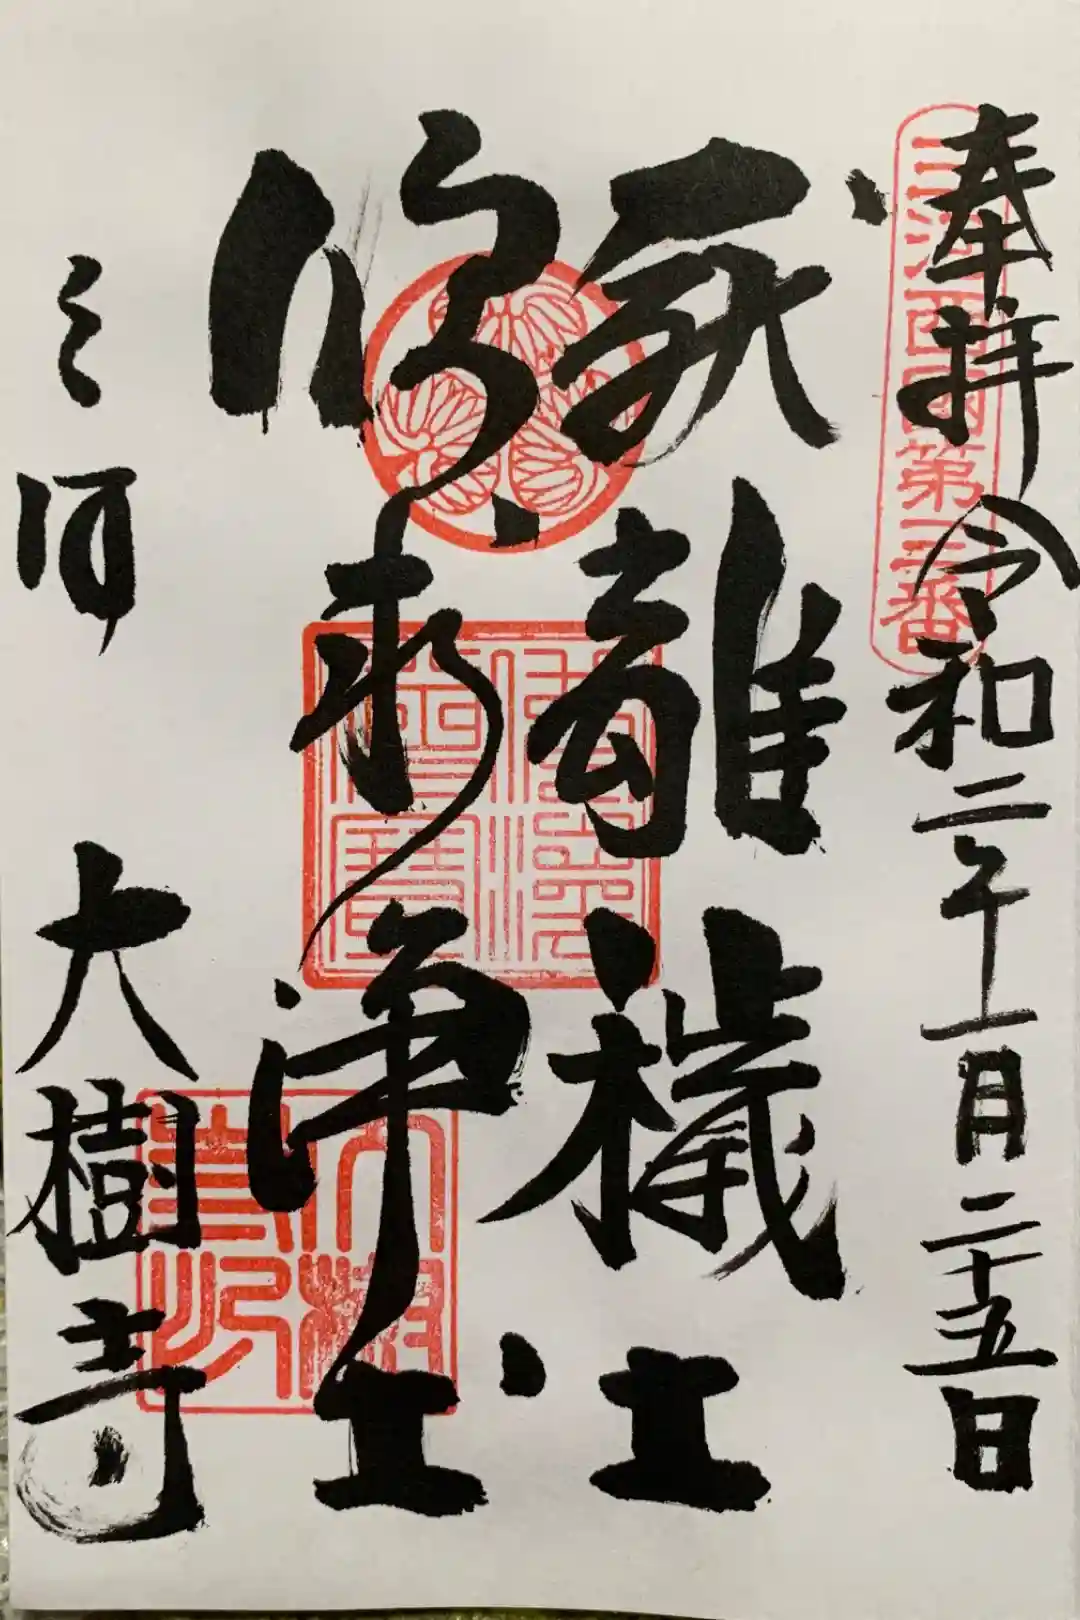 奉拝 令和二年十一月二十五日
三河西國第三番
厭離穢土
欣求浄土
佛法僧寶
三河 大樹寺